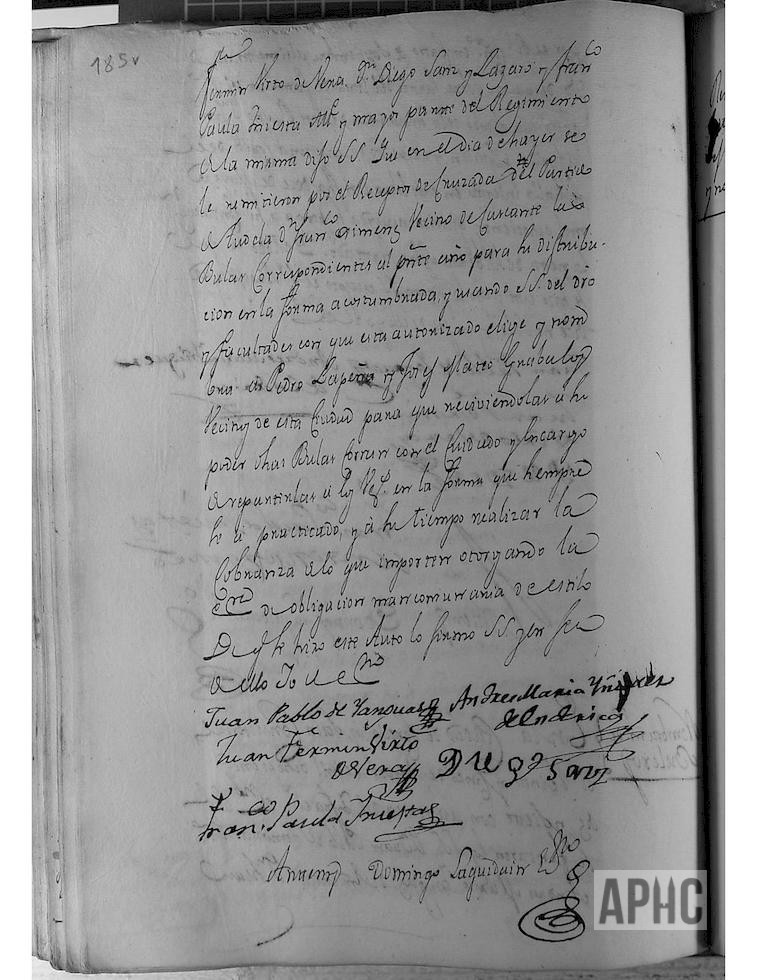 185v
Fermin Virto de Vera, Dn. Diego Sanz y Lazaro y Franco
Paula Iniesta Alce y mayor parte del Regimiento
de la misma dijo SS. que en el dia de hayer se
le remitieron por el Receptor de Cruzada del Partido
de Tudela dn. Franco Ximenez Vecino de Cascante las
Bulas Correspondientes al pnte año para su distribu-
cion en la forma acostumbrada, y usando SS. del dro
y facultades con que esta autorizado elige y nom
bra a Pedro Lapeña y Josef Mateo
Vecinos de esta Ciudad para que reciviendolas a su
poder dhas Bulas corran con el Cuidado y Encargo
de repartirlas a los Vs. en la forma que siempre
se á practicado, y á su tiempo realizar la
Cobranza de lo que importen otorgando la
esra de obligacion mancomunada de estilo
De q se hizo este Auto lo firmo SS. y en fee
de ello Yo el esno
Juan Pablo de Yanguas Andres Maria Yñiguez
de Enderica
Juan Fermin Virto
de Vera Diego Sanz
Franco. Paula Iniesta
Antemi Domingo Laquidain Esno
APHC